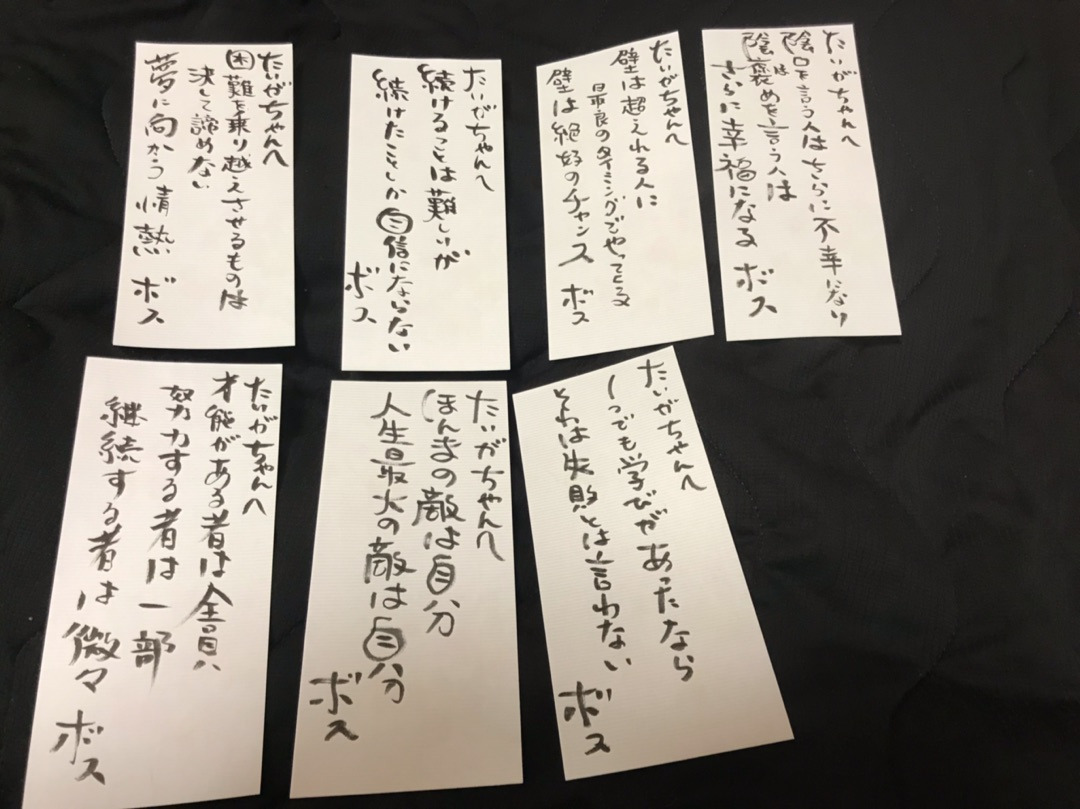 たいがちゃんへ
陰口を言う人はさらに不幸になり
陰褒めを言う人は
さらに幸福になる ボス
たいがちゃんへ
壁は超えれる人に
最良のタイミングでやってくる
壁は絶好のチャンス ボス
たいがちゃんへ
続けることは難しいが
続けたことしか自信にならない
ボス
たいがちゃんへ
困難を乗り越えさせるものは
決して諦めない
夢に向かう情熱 ボス
たいがちゃんへ
1つでも学びがあったなら
それは失敗とは言わない
ボス
たいがちゃんへ
ほんまの敵は自分
人生最大の敵は自分
ボス
たいがちゃんへ
才能がある者は全員
努力する者は一部
継続する者は微々
ボス